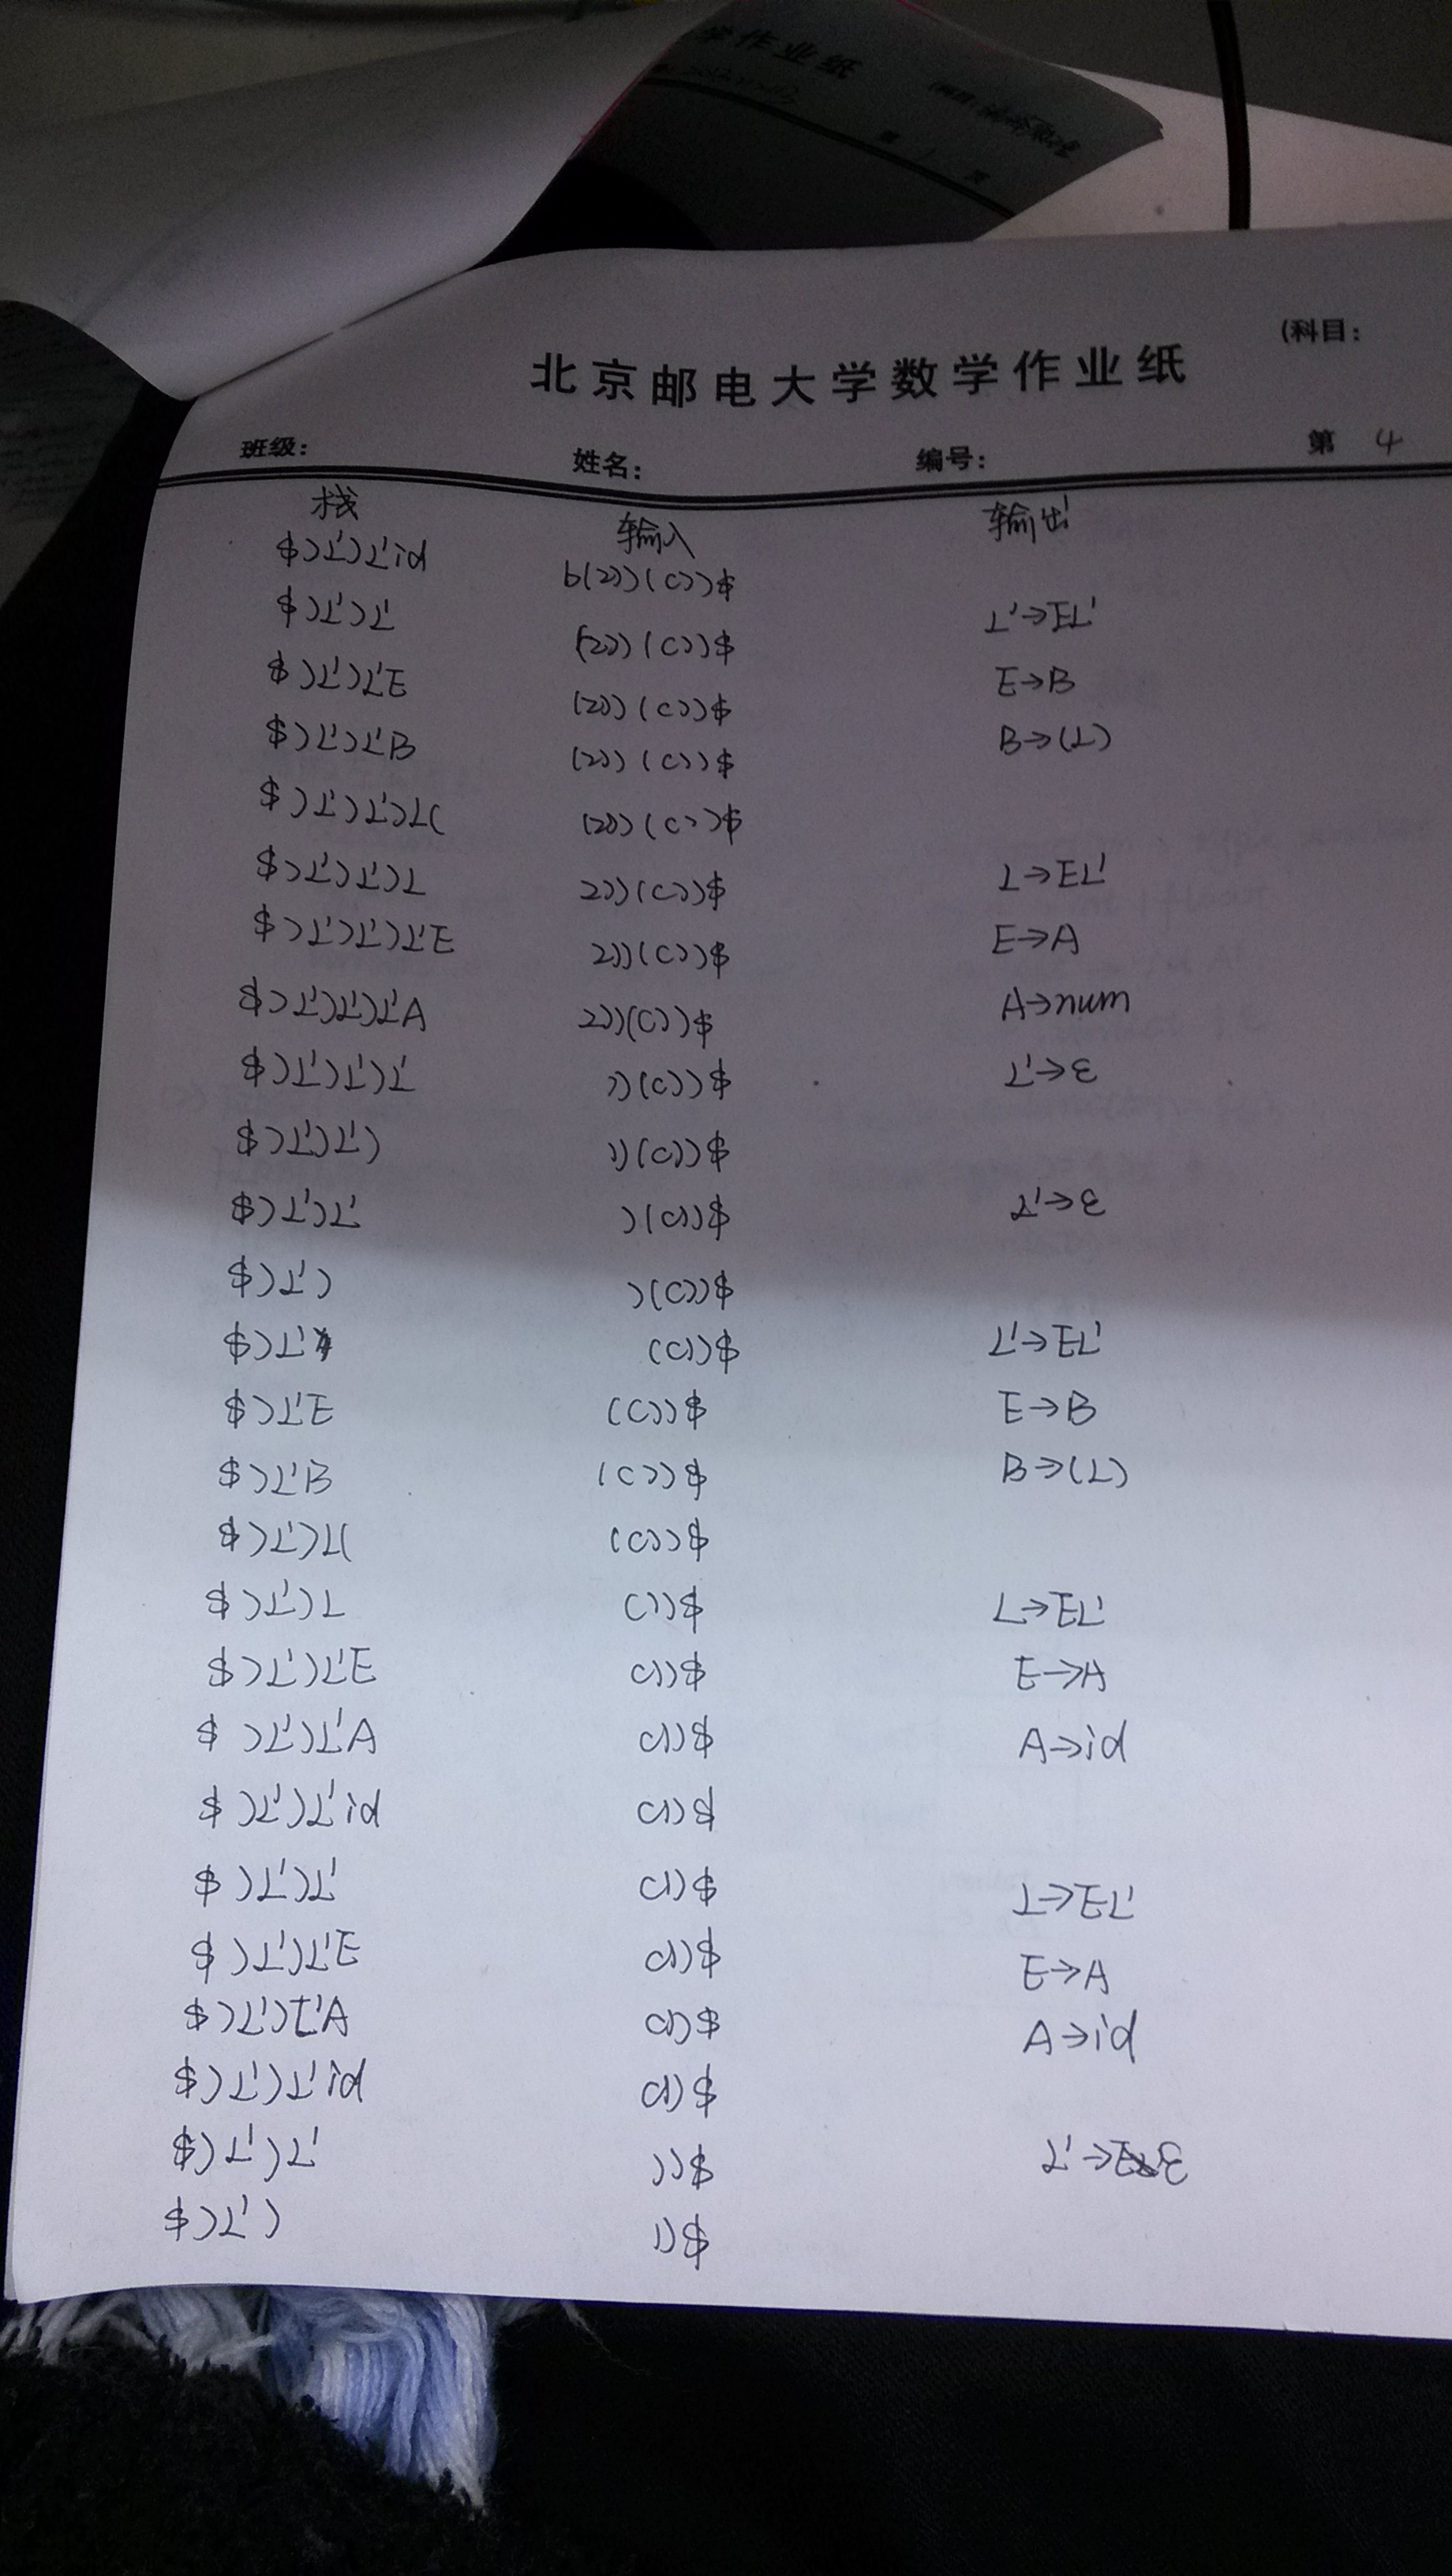 学作业纸
第 1 页
(科目:
北京邮电大学数学作业纸
班级: 姓名: 编号: 第 4
栈 输入 输出
$)L')L'id b(2))(c))$
$)L')L' (2))(c))$ L'→EL'
$)L')L'E (2))(c))$ E→B
$)L')L'B (2))(c))$ B→(L)
$)L')L')L( (2))(c))$
$)L')L')L 2))(c))$ L→EL'
$)L')L')L'E 2))(c))$ E→A
$)L')L')L'A 2))(c))$ A→num
$)L')L')L' ))(c))$ L'→ε
$)L')L') ))(c))$
$)L')L' )(c))$ L'→ε
$)L') )(c))$
$)L' (c))$ L'→EL'
$)L'E (c))$ E→B
$)L'B (c))$ B→(L)
$)L')L( (c))$
$)L')L c))$ L→EL'
$)L')L'E c))$ E→A
$)L')L'A c))$ A→id
$)L')L'id c))$
$)L')L' c))$ L→EL'
$)L')L'E c))$ E→A
$)L')L'A c))$ A→id
$)L')L'id c))$
$)L')L' ))$ L'→ε
$)L') ))$